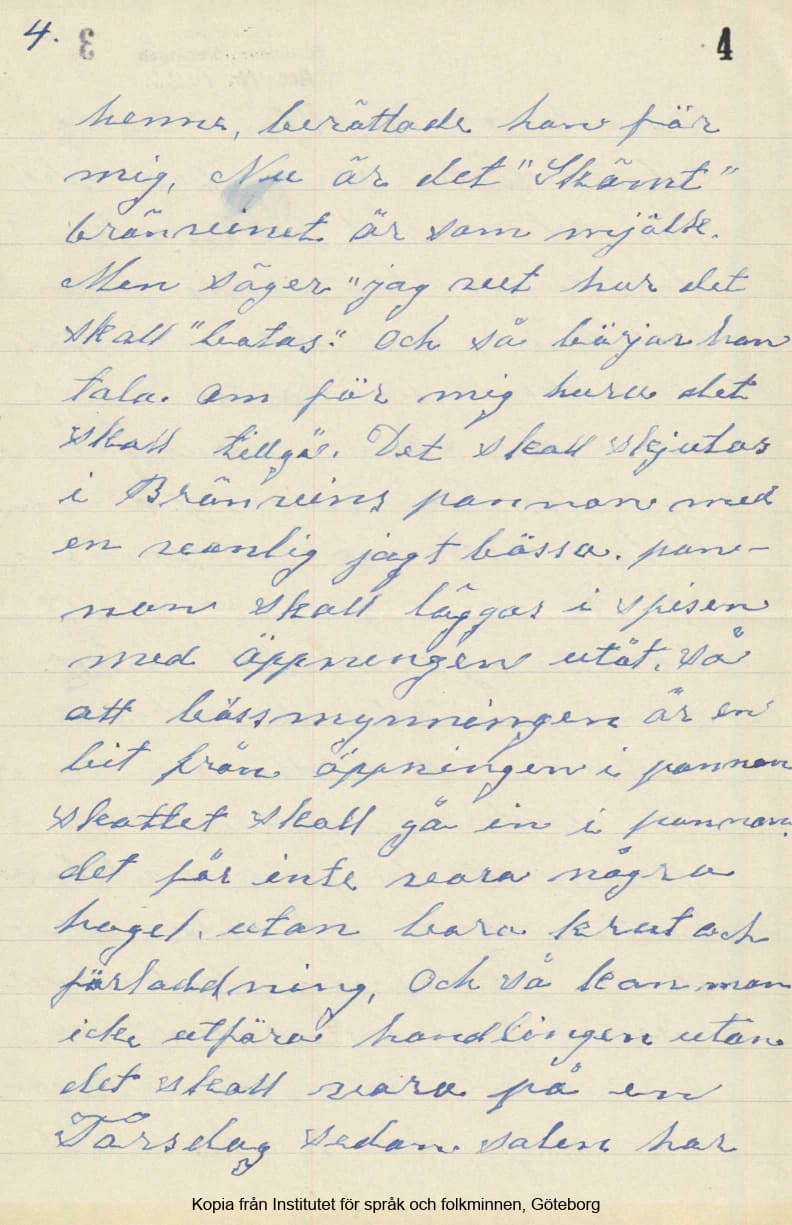 4. 3 4
henne, berättade han för
mig, Nu är det "Skämt"
brännvinet är som mjölk.
Men säger "jag vet hur det
skall "botas". Och så börjar han
tala om för mig huru det
skall tillgå. Det skall skjutas
i Brännvins pannan med
en vanlig jagt bössa. pan-
nan skall läggas i spisen
med öppningen utåt. så
att bössmynningen är en
bit från öppningen i pannan
skottet skall gå in i pannan.
det får inte vara några
hagel, utan bara krut och
förladdning, Och så kan man
icke utföra handlingen utan
det skall vara på en
Torsdag sedan solen har
Kopia från Institutet för språk och folkminnen, Göteborg